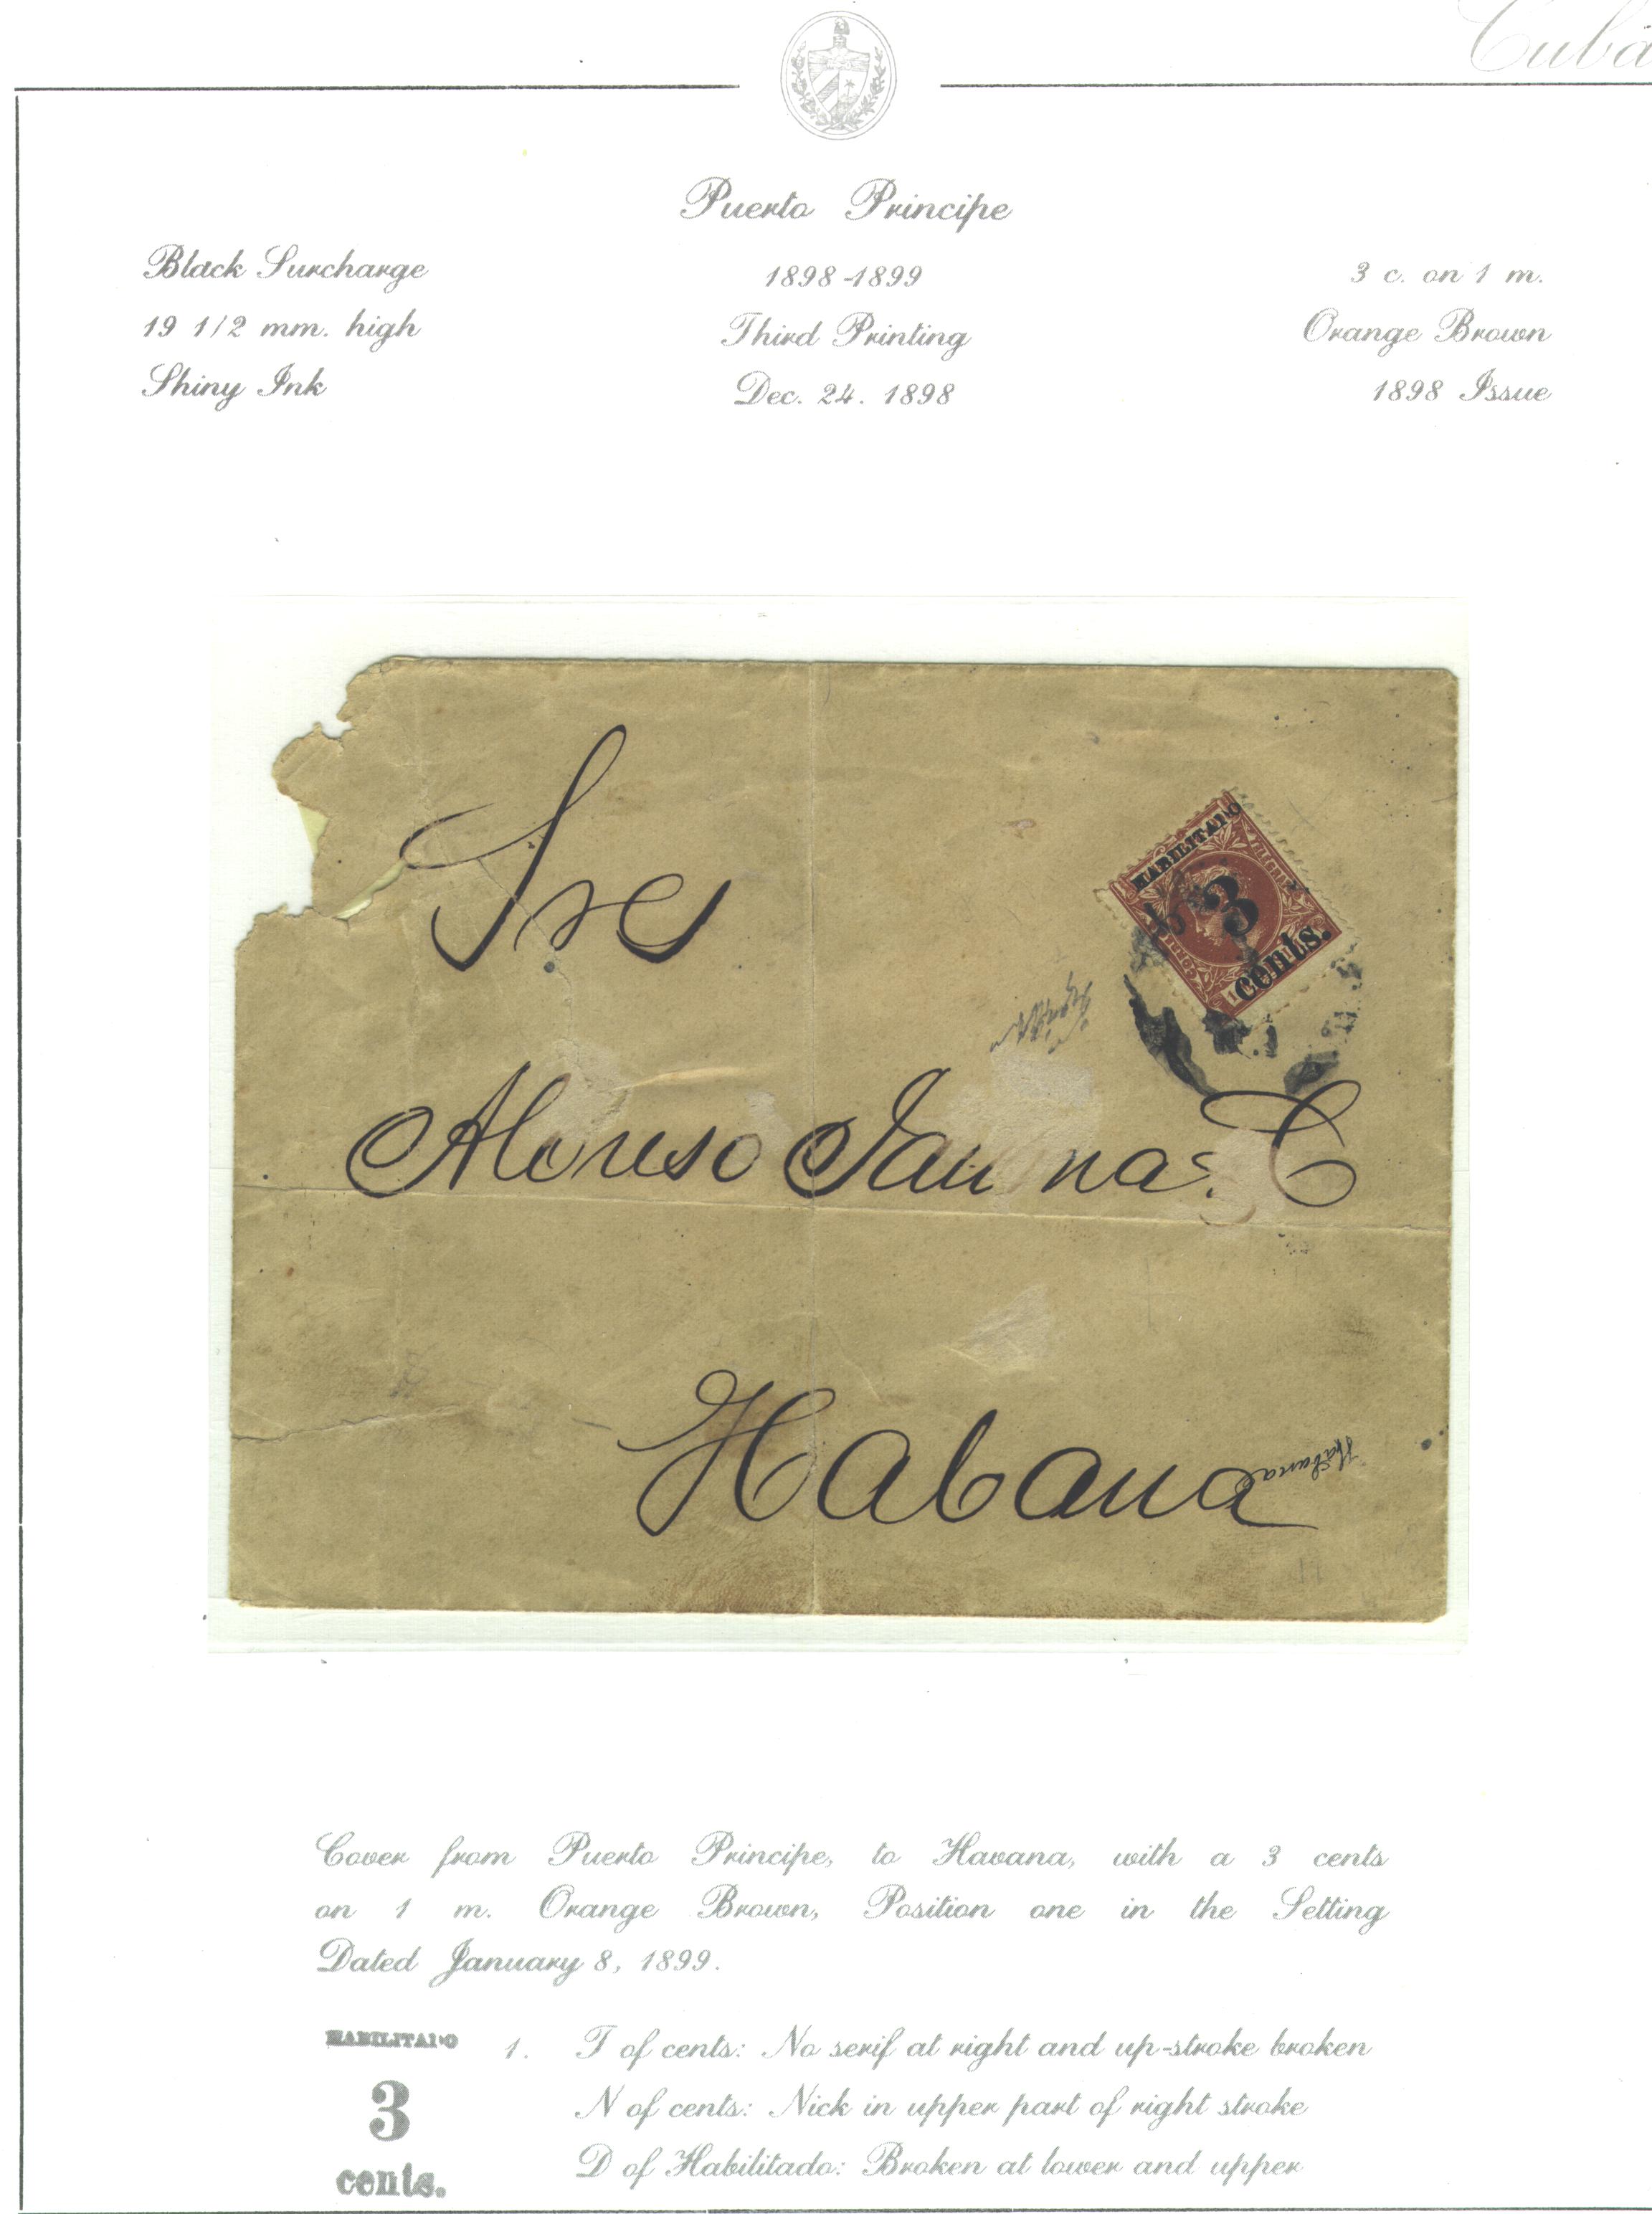 Cuba
Puerto Principe
Black Surcharge
19 1/2 mm. high
Shiny Ink
1898-1899
Third Printing
Dec. 24. 1898
3 c. on 1 m.
Orange Brown
1898 Issue
HABILITADO
3
cents.
Sres
Alonso Jauma y C
Habana
Habana
Cover from Puerto Principe, to Havana, with a 3 cents
on 1 m. Orange Brown, Position one in the Setting
Dated January 8, 1899.
HABILITADO
3
cents.
1. T of cents: No serif at right and up-stroke broken
N of cents: Nick in upper part of right stroke
D of Habilitado: Broken at lower and upper